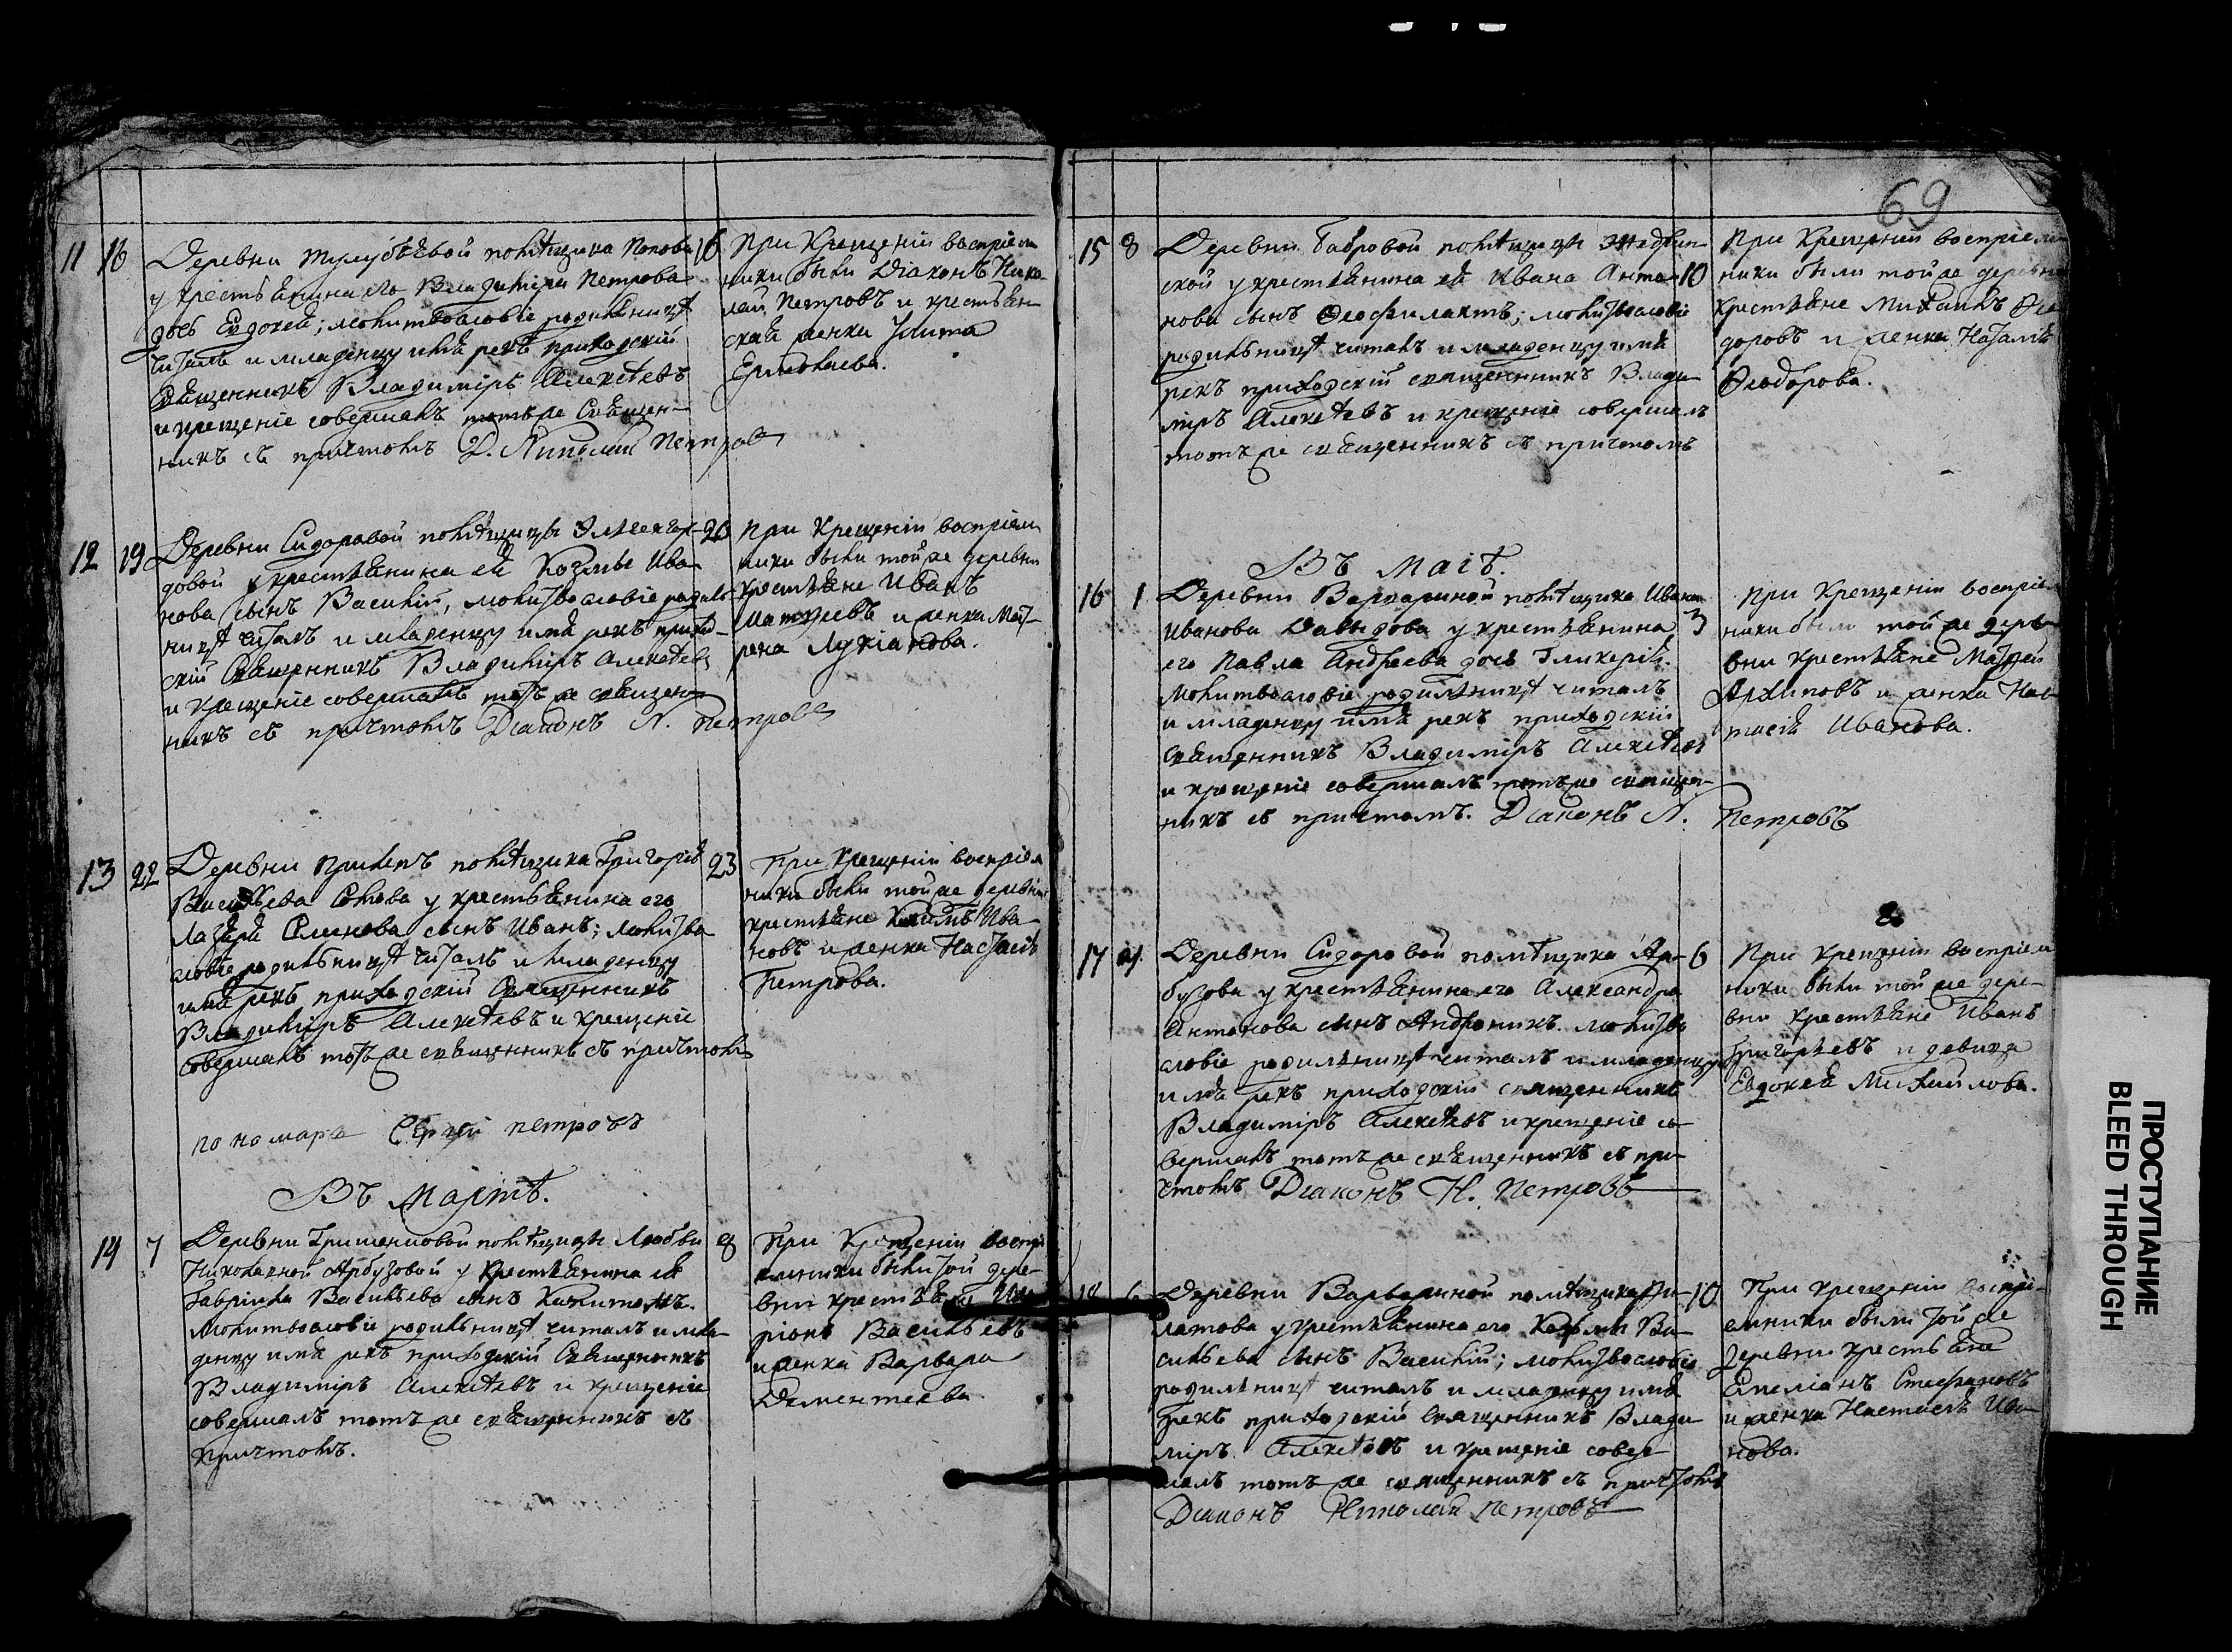 69
11 16 Деревни помѣщика Попова 16
у крестьянина его Владимира Петрова
дочь Евдокея; молитвословіе родильницѣ
читалъ и младенцу имя рекъ приходскій
священникъ Владиміръ Алексѣевъ
и крещеніе совершалъ тотъ же священ-
никъ съ причтомъ Д. Николай Петровъ
При Крещеніи воспріем
ники были Діаконъ Нико
лай Петровъ и крестьян
ская женка Улита
Ермолаева.
12 19 Деревни Сидоровой помѣщицы 20
довой у крестьянина ея Козмы Ива
нова сынъ Василій, молитвословіе родиль
ницѣ читалъ и младенцу имя рекъ приход-
скій Священникъ Владиміръ Алексѣевъ
и крещеніе совершалъ тотъ же священ
никъ съ причтомъ Діаконъ Н. Петровъ
При Крещеніи воспріем
ники были той же деревни
крестьяне Иванъ
Матвѣевъ и женка Мат-
рена Лукіанова.
13 22 Деревни помѣщика Григорія 23
Васильева у крестьянина его
Лазаря Семенова сынъ Иванъ; молитво
словіе родильницѣ читалъ и младенцу
имя рекъ приходскій Священникъ
Владиміръ Алексѣевъ и крещеніе
совершалъ тотъ же священникъ съ причтомъ
При Крещеніи воспріем
ники были той же деревни
крестьяне Ива
новъ и женка Настасія
Петрова.
пономарь Сергій петровъ
Въ Мартѣ.
14 7 Деревни помѣщицы Любви 8
Николаевой Арбузовой у крестьянина ея
Гавріила Васильева сынъ Капитонъ.
Молитвословіе родильницѣ читалъ и мла-
денцу имя рекъ приходскій Священникъ
Владиміръ Алексѣевъ и крещеніе
совершалъ тотъ же священникъ съ
причтомъ.
При Крещеніи воспрі
емники были той дере-
вни крестьяне
Васильевъ
и женка Варвара
Дементеева.
15 8 Деревни Бабровой помѣщицы
ской у крестьянина ея Ивана Анто- 10
нова сынъ Феофилактъ; молитвословіе
родильницѣ читалъ и младенцу имя
рекъ приходскій священникъ Влади
міръ Алексѣевъ и крещеніе совершалъ
тотъ же священникъ съ причтомъ
При Крещеніи воспріем
ники были той же деревни
крестьяне Михаилъ Ѳео
доровъ и женка Наталія
Ѳеодорова.
Въ Маіѣ.
16 1 Деревни Варвариной помѣщика Ивана
Иванова Давыдова у крестьянина 3
его Павла Андреева дочь Гликерія.
Молитвословіе родильницѣ читалъ
и младенцу имя рекъ приходскій
Священникъ Владиміръ Алексѣевъ
и крещеніе совершалъ тотъ же священ-
никъ съ причтомъ. Діаконъ Н. Петровъ
При Крещеніи воспріем
ники были той же дере-
вни крестьяне
Архиповъ и женка Нас
тасія Иванова.
17 Деревни Сидоровой помѣщика Ар- 6
бузова у крестьянина его Александра
Антонова сынъ Андроникъ. молитво
словіе родильницѣ читалъ и младенцу
имя рекъ приходскій священникъ
Владиміръ Алексѣевъ и крещеніе со-
вершалъ тотъ же священникъ съ при-
чтомъ Діаконъ Н. Петровъ
При Крещеніи воспріем
ники были той же дере-
вни крестьяне Иванъ
Григорьевъ и девица
Евдокея Михайлова.
18 6 Деревни Варвариной помѣщика Фи- 10
латова у крестьянина его Козмы Ва-
сильева сынъ Василій; молитвословіе
родильницѣ читалъ и младенцу имя
рекъ приходскій Священникъ Влади
міръ Алексѣевъ и крещеніе совер
шалъ тотъ же священникъ съ причтомъ
Діаконъ Николай Петровъ
При Крещеніи воспрі-
емники были той же
деревни крестьяне
Емеліанъ Стефановъ
и женка Настасія Ива-
нова.
ПРОСТУПАНИЕ
BLEED THROUGH